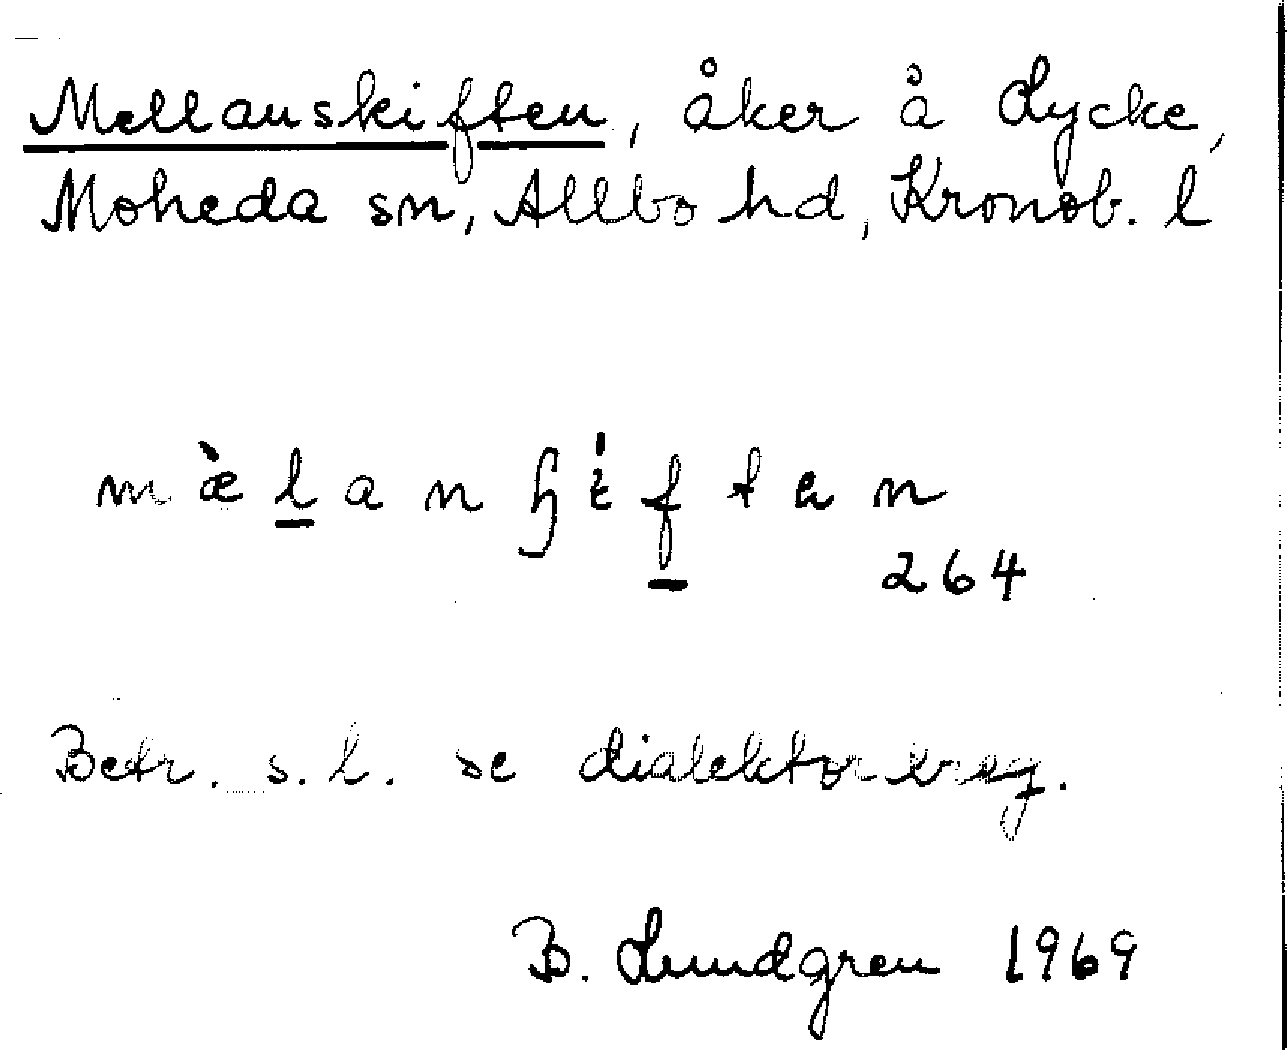 Mellanskiften, åker å Lycke,
Moheda sn, Allbo hd, Kronob. l
mæ̀l̲anʃıf̲ten
264
Betr. s. l. se dialektortsreg.
B. Lundgren 1969